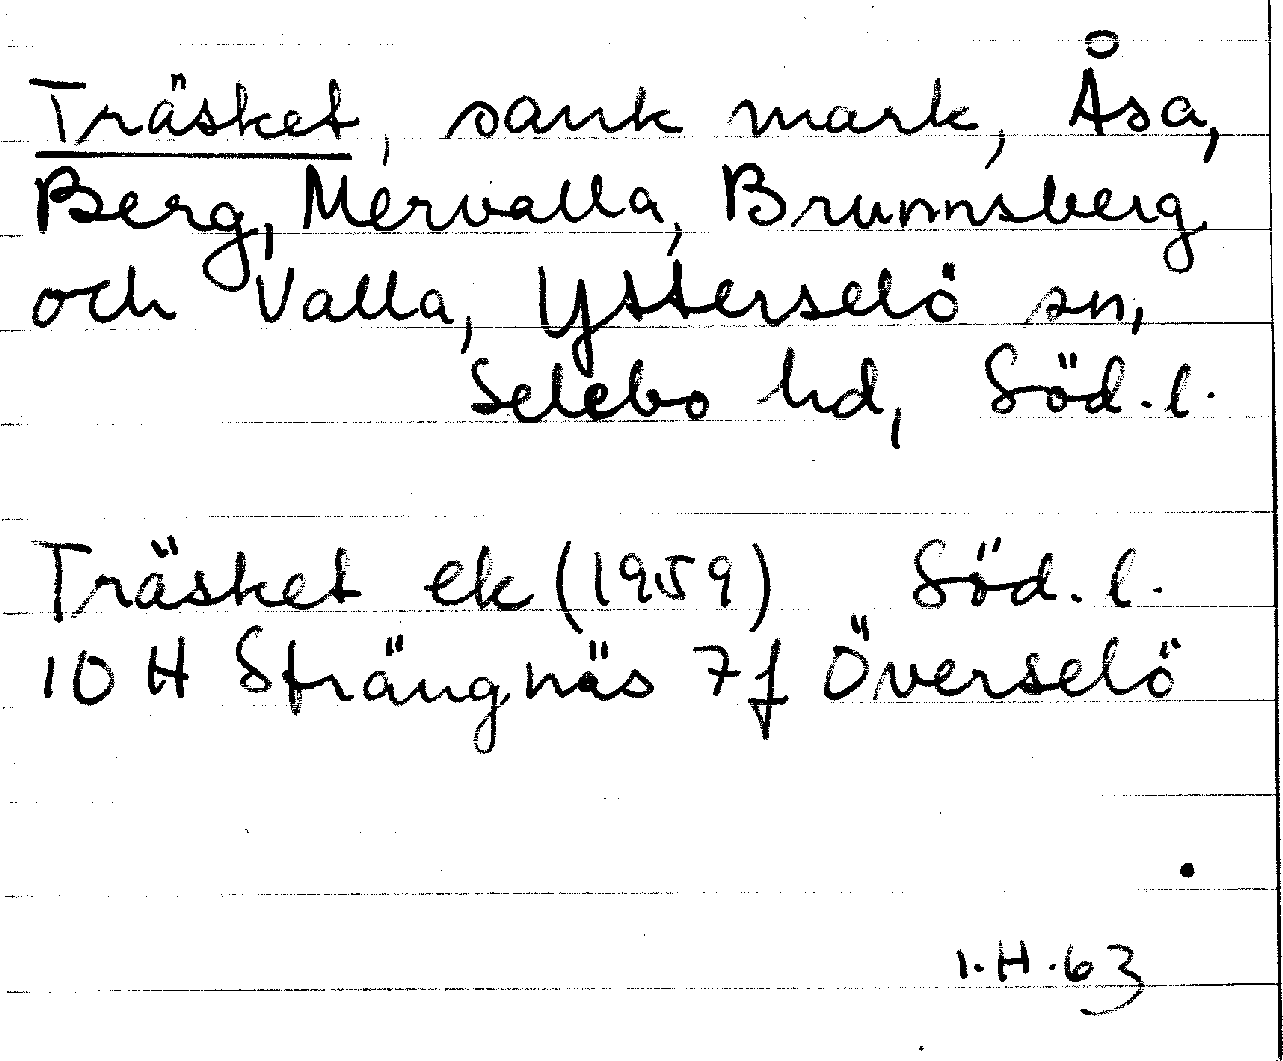 Träsket, sank mark, Åsa,
Berg, Mervalla, Brunnsberg
och Valla, Ytterselö sn,
Selebo hd, Söd.l.
Träsket ek (1959) Söd.l.
10 H Strängnäs 7f Överselö
I.H.63